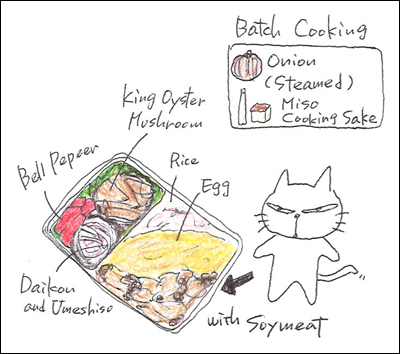 Batch Cooking
Onion
(Steamed)
Miso
Cooking Sake
King Oyster
Mushroom
Rice
Bell Pepeer
Egg
Daikon
and Umeshiso
with Soymeat